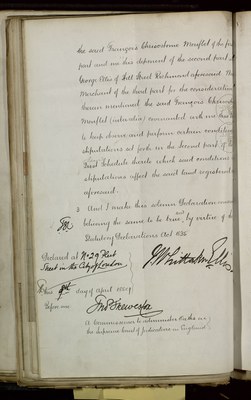 the said François Theodore Mouflet of the first
part and me this deponent of the second part
George Ellis of Hill Street Richmond aforesaid
Merchant of the third part for the consideration
therein mentioned the said François Theodore
Mouflet (inter alia) covenanted with me
to keep observe and perform certain conditions
stipulations set forth in the Second part of the
First Schedule thereto which said conditions
stipulations affect the said land registered
aforesaid
3 And I make this solemn Declaration
believing the same to be true and by virtue of the
Statutory Declarations Act 1835
Declared at No 29 Fleet
Street in the City of London
this day of April 1889
Before me
A Commissioner to administer Oaths in
the Supreme Court of Judicature in England